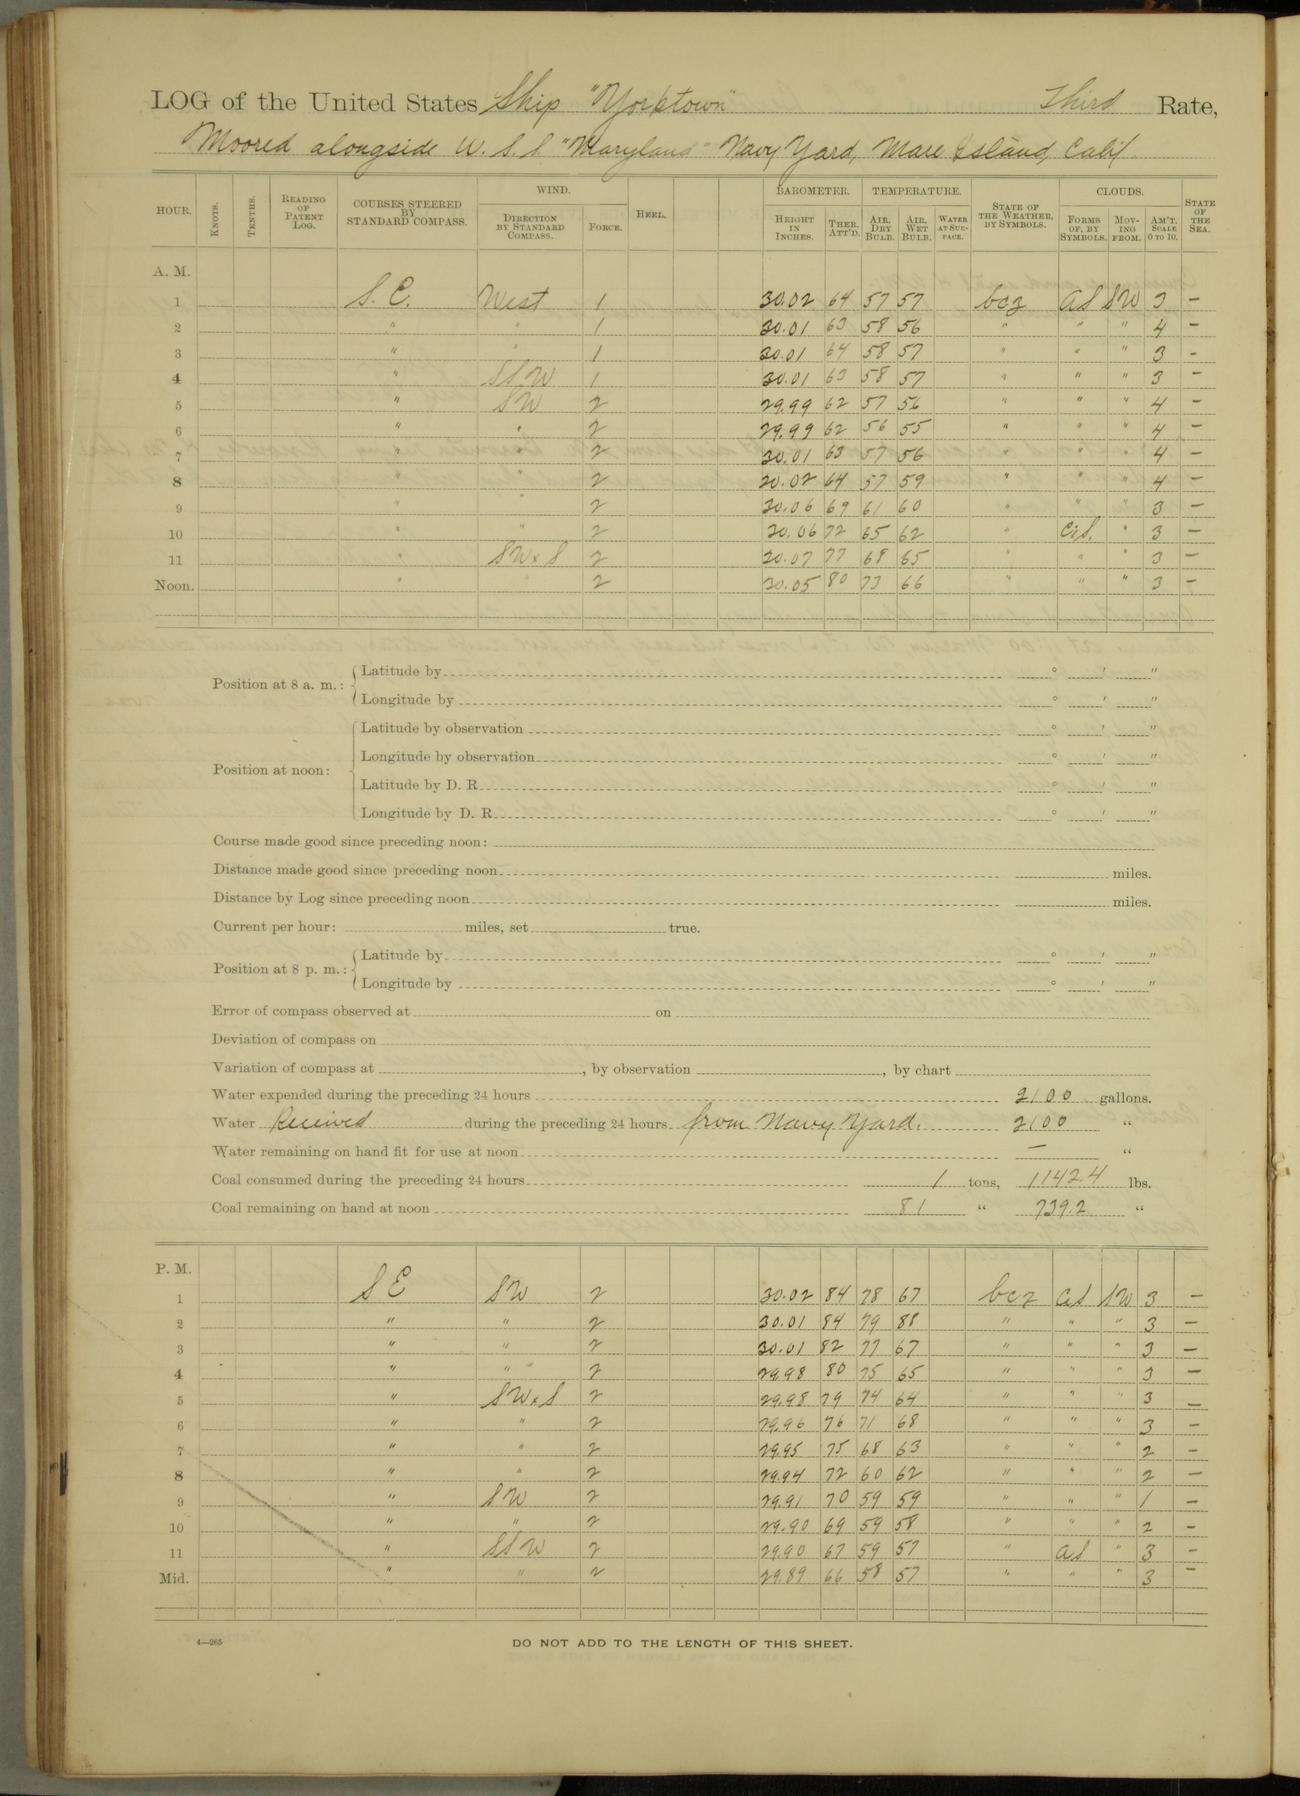 LOG of the United States Ship "Yorktown" Third Rate,
Moored alongside U.S.S "Maryland" Navy Yard, Mare Island, Calif.
HOUR. KNOTS. TENTHS. READING OF PATENT LOG. COURSES STEERED BY STANDARD COMPASS. WIND. DIRECTION BY STANDARD COMPASS. FORCE. HEEL. BAROMETER. HEIGHT IN INCHES. THER. ATT'D. TEMPERATURE. AIR, DRY BULB. AIR, WET BULB. WATER AT SURFACE. STATE OF THE WEATHER, BY SYMBOLS. CLOUDS. FORMS OF, BY SYMBOLS. MOVING FROM. AM'T. SCALE 0 TO 10. STATE OF THE SEA.
A. M.
1 S.E. West 1 30.02 64 57 57 bcz AS SW 3 –
2 " " 1 30.01 63 58 56 " " " 4 –
3 " " 1 30.01 64 58 57 " " " 3 –
4 " SSW 1 30.01 63 58 57 " " " 3 –
5 " SW 2 29.99 62 57 56 " " " 4 –
6 " " 2 29.99 62 56 55 " " " 4 –
7 " " 2 30.01 63 57 56 " " " 4 –
8 " " 2 30.02 64 57 59 " " " 4 –
9 " " 2 30.06 69 61 60 " " " 3 –
10 " " 2 30.06 72 65 62 " CiS. " 3 –
11 " SWxS 2 30.07 77 68 65 " " " 3 –
Noon. " " 2 30.05 80 73 66 " " " 3 –
Position at 8 a. m.: Latitude by ° ' "
Longitude by ° ' "
Position at noon: Latitude by observation ° ' "
Longitude by observation ° ' "
Latitude by D. R. ° ' "
Longitude by D. R. ° ' "
Course made good since preceding noon:
Distance made good since preceding noon miles.
Distance by Log since preceding noon miles.
Current per hour: miles, set true.
Position at 8 p. m.: Latitude by ° ' "
Longitude by ° ' "
Error of compass observed at on
Deviation of compass on
Variation of compass at , by observation , by chart
Water expended during the preceding 24 hours 2100 gallons.
Water Received during the preceding 24 hours from Navy Yard. 2100 "
Water remaining on hand fit for use at noon — "
Coal consumed during the preceding 24 hours 1 tons, 1142.4 lbs.
Coal remaining on hand at noon 81 " 739.2 "
P. M.
1 SE SW 2 30.02 84 78 67 bcz SW 3 –
2 " " 2 30.01 84 79 88 " " " 3 –
3 " " 2 30.01 82 77 67 " " " 3 –
4 " " " 2 29.98 80 75 65 " " " 3 –
5 " SWxS 2 29.98 79 74 64 " " " 3 –
6 " " 2 29.96 76 71 68 " " " 3 –
7 " " 2 29.95 75 68 63 " " " 2 –
8 " " 2 29.94 72 60 62 " " " 2 –
9 " SW 2 29.91 70 59 59 " " " 1 –
10 " " 2 29.90 69 59 58 " " " 2 –
11 " SSW 2 29.90 67 59 57 " aS " 3 –
Mid. " " 2 29.89 66 58 57 " " " 3 –
4—265 DO NOT ADD TO THE LENGTH OF THIS SHEET.